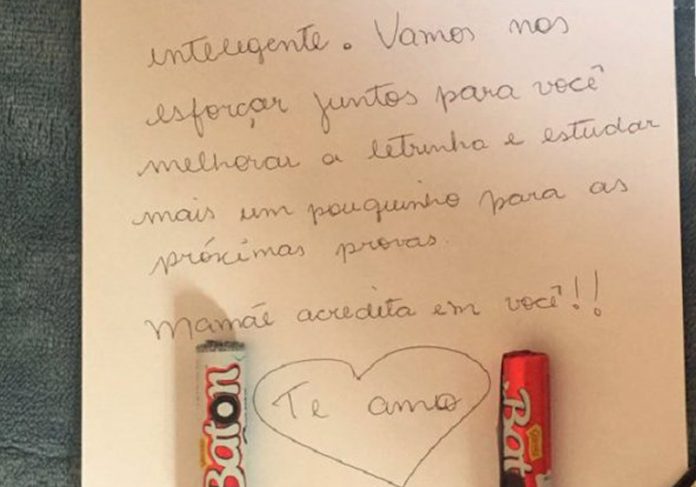 inteligente. Vamos nos
esforçar juntos para você
melhorar a letrinha e estudar
mais um pouquinho para as
próximas provas.
Mamãe acredita em você!!
Te amo
Baton
Bat